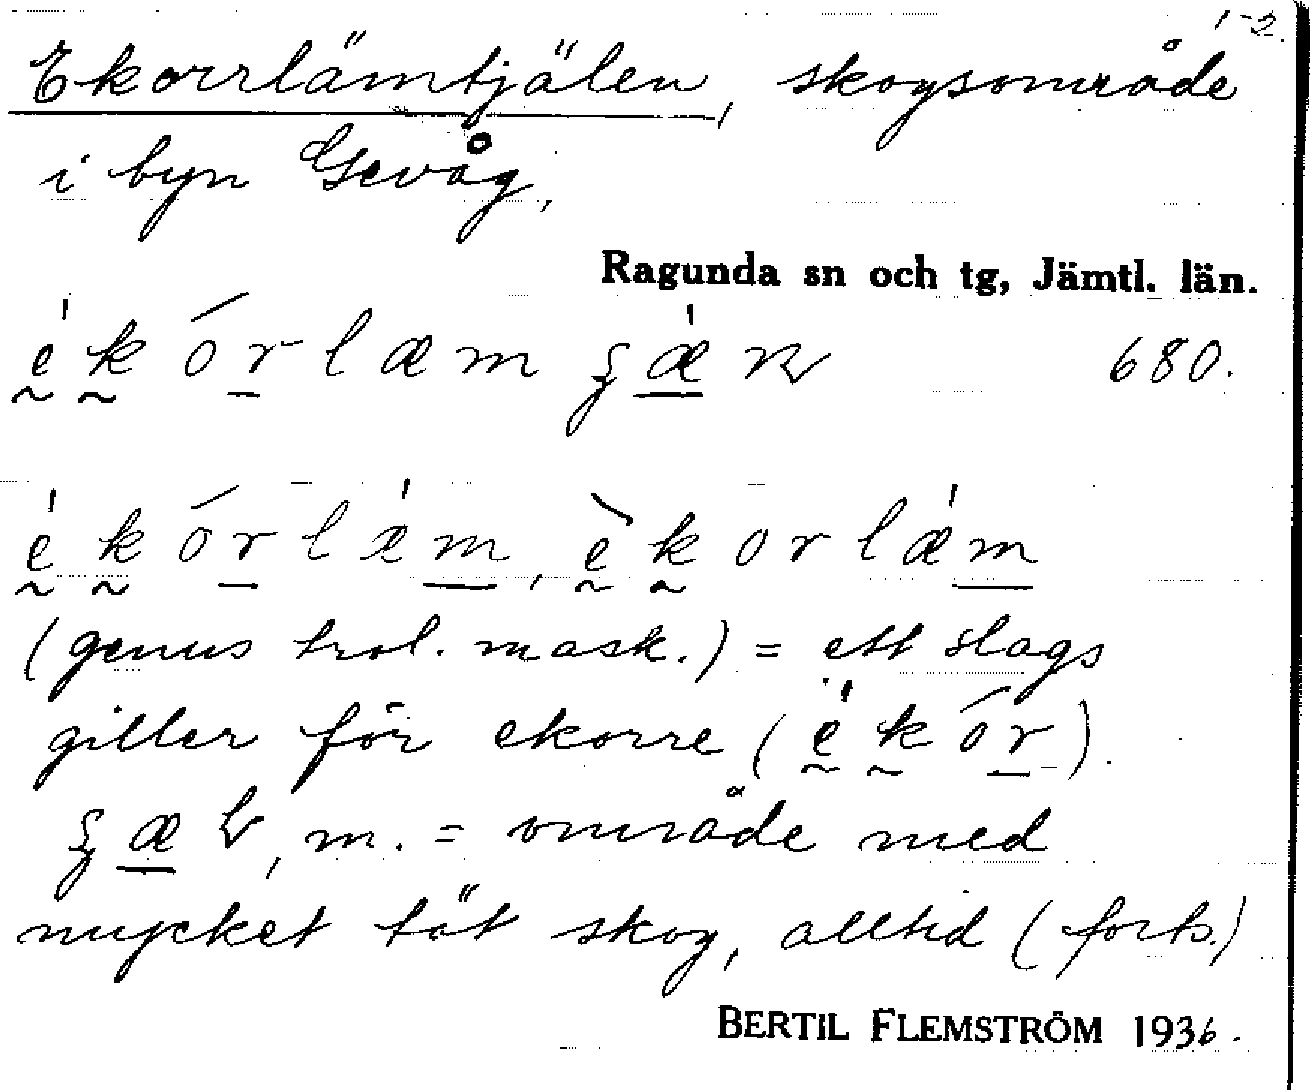 1-2.
Ekorrlämtjälen, skogsområde
i byn Gevåg,
Ragunda sn och tg, Jämtl. län.
680.
(genus trol. mask.) = ett slags
giller för ekorre (ékór).
m. = område med
mycket tät skog, alltid (forts.)
BERTIL FLEMSTRÖM 1936.